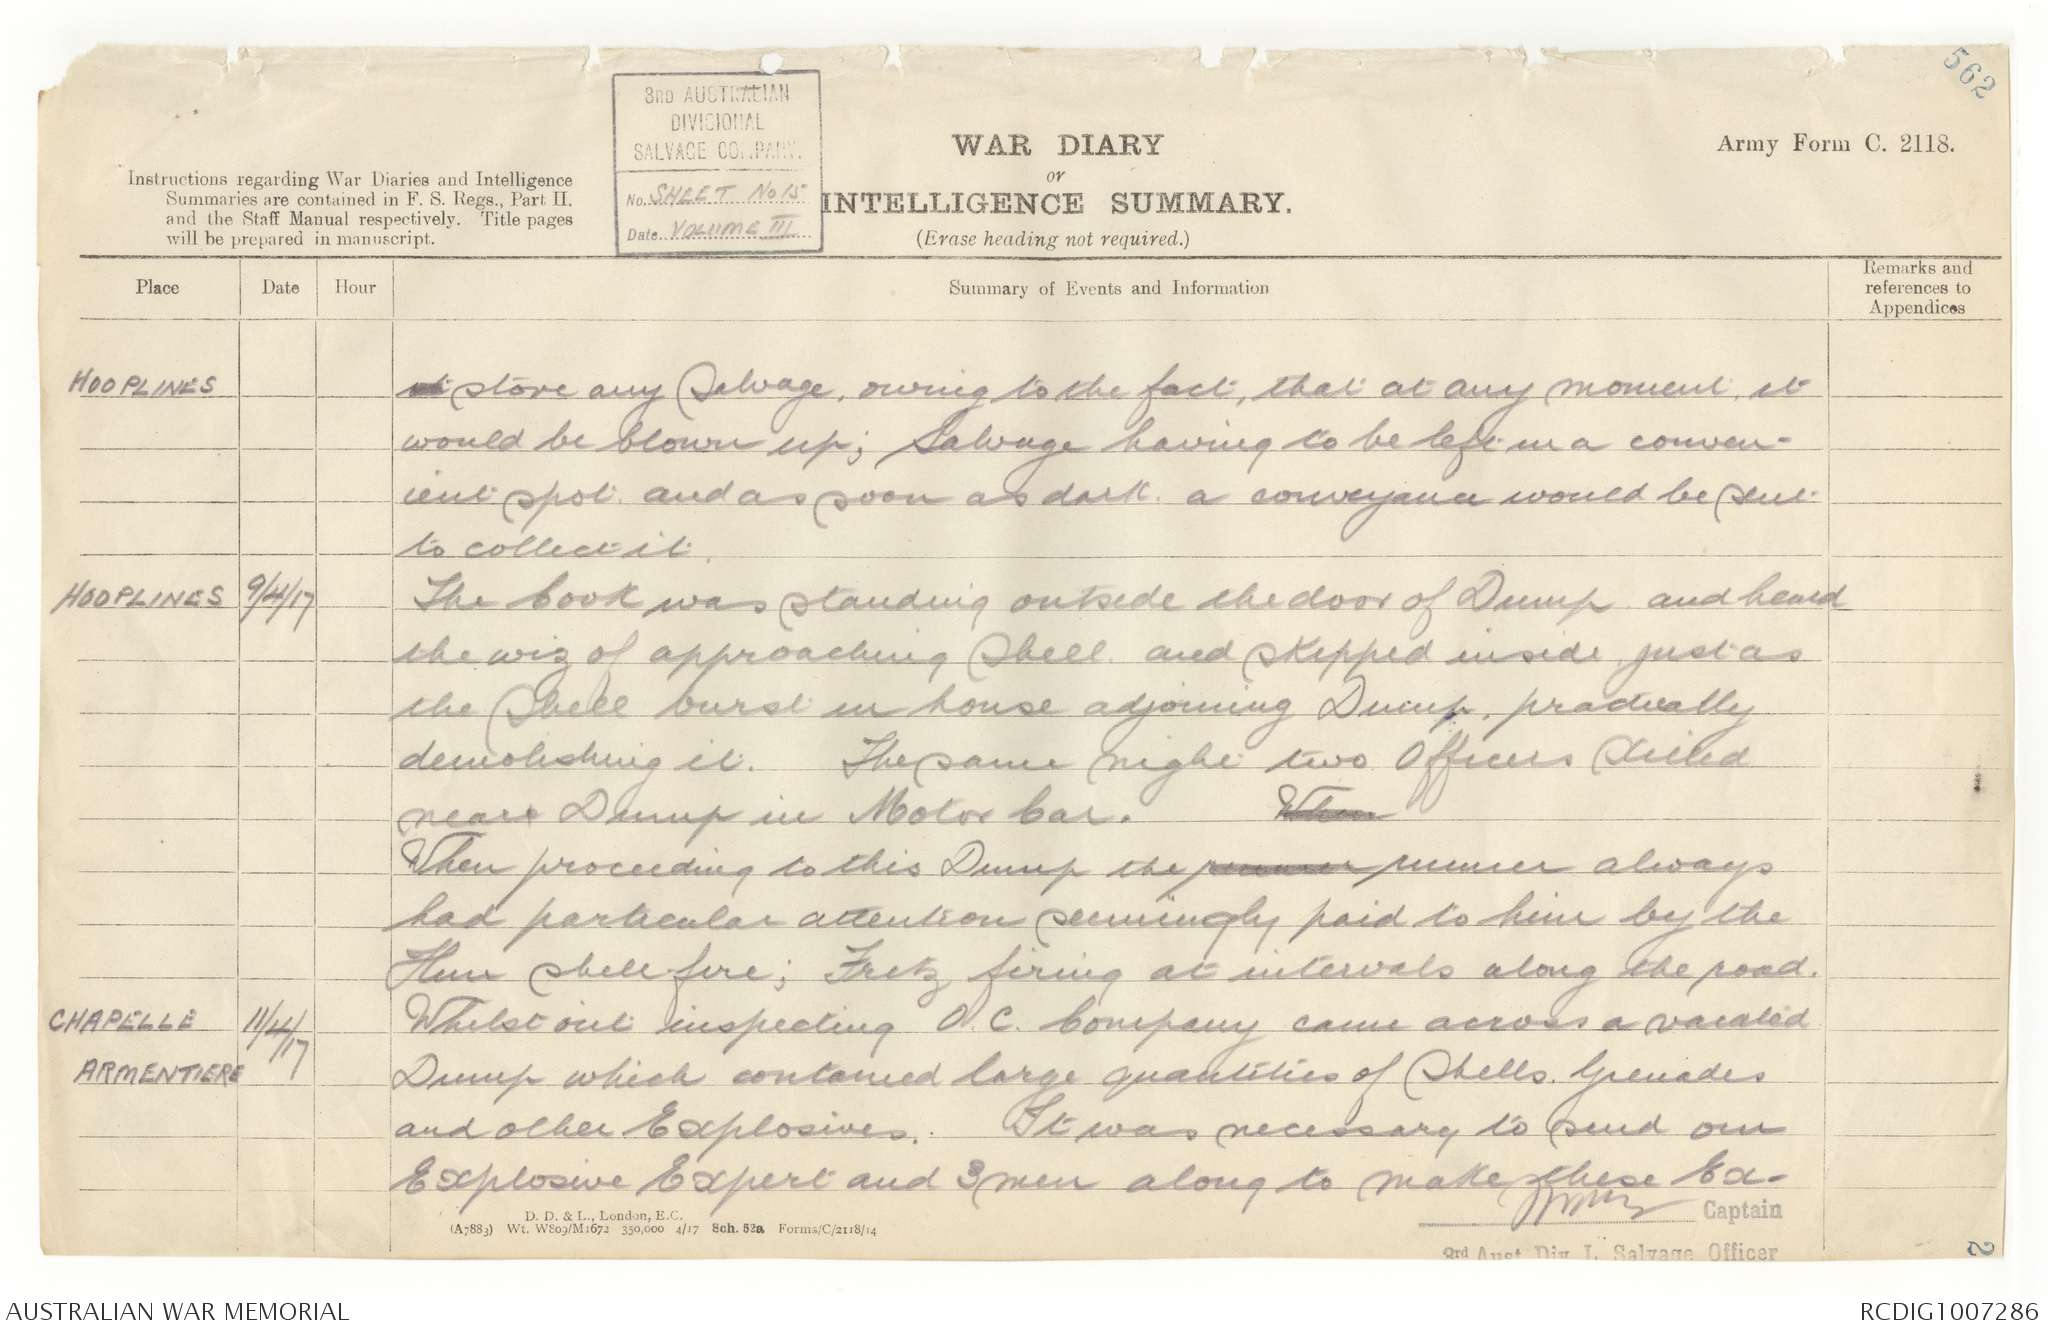 562
3RD AUSTRALIAN
DIVISIONAL
SALVAGE COMPANY.
No. SHEET No 15
Date VOLUME III
WAR DIARY
or
INTELLIGENCE SUMMARY.
(Erase heading not required.)
Army Form C. 2118.
Instructions regarding War Diaries and Intelligence
Summaries are contained in F. S. Regs., Part II.
and the Staff Manual respectively. Title pages
will be prepared in manuscript.
Place Date Hour Summary of Events and Information Remarks and references to Appendices
HOOPLINES store any Salvage, owing to the fact, that at any moment, it
would be blown up; Salvage having to be left in a conven-
ient spot. and as soon as dark. a conveyance would be sent
to collect it.
HOOPLINES 9/4/17 The Cook was standing outside the door of Dump. and heard
the wiz of approaching Shell. and skipped inside, just as
the Shell burst in house adjoining Dump, practically
demolishing it. The same night two Officers killed
near Dump in Motor Car. When
When proceeding to this Dump the runner runner always
had particular attention seemingly paid to him by the
Hun shell fire; Fritz firing at intervals along the road.
CHAPELLE 11/4/17 Whilst out inspecting O.C. Company came across a vacated
ARMENTIERE Dump which contained large quantities of Shells. Grenades
and other Explosives. It was necessary to send our
Explosive Expert and 3 men along to make these Ex-
Captain
3rd Aust Div I. Salvage Officer
D. D. & L., London, E.C.
(A7883) Wt. W809/M1672 350,000 4/17 Sch. 52a Forms/C/2118/14
2
AUSTRALIAN WAR MEMORIAL
RCDIG1007286